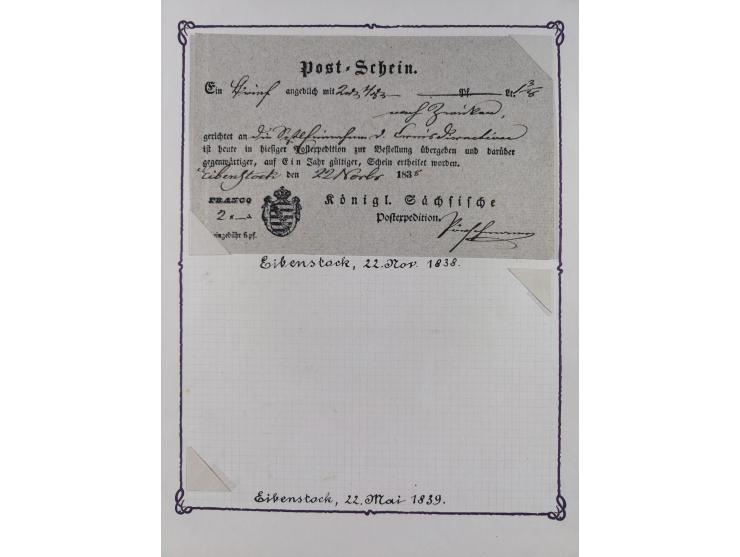 Post-Schein.
Ein Brief angeblich mit Pf. Lt.
nach Zwickau,
gerichtet an die d.
ist heute in hiesiger Postexpedition zur Bestellung übergeben und darüber
gegenwärtiger, auf Ein Jahr gültiger, Schein ertheilt worden.
Eibenstock den 22 Novbr 1838
FRANCO Königl. Sächsische
2 Postexpedition.
eingebühr 6 pf.
Eibenstock, 22. Nov. 1838.
Eibenstock, 22. Mai 1839.